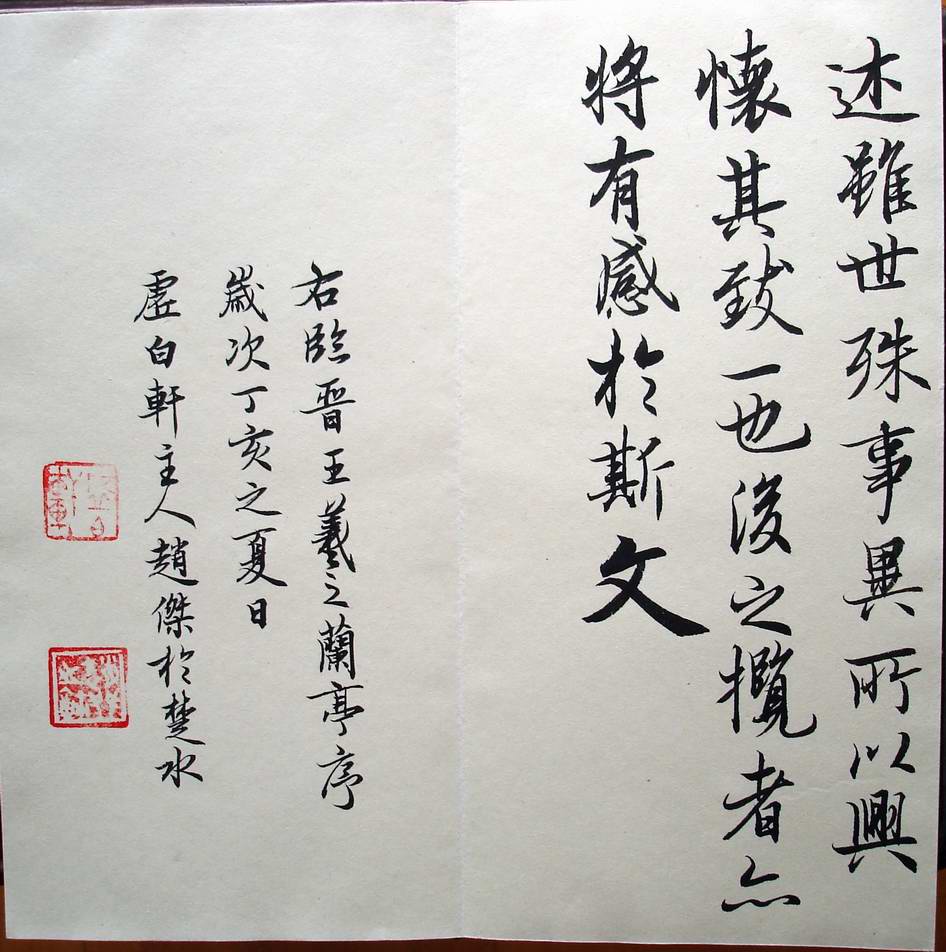 述雖世殊事異所以興
懷其致一也後之攬者亦
將有感於斯文
右臨晉王羲之蘭亭序
歲次丁亥之夏日
虛白軒主人趙傑於楚水